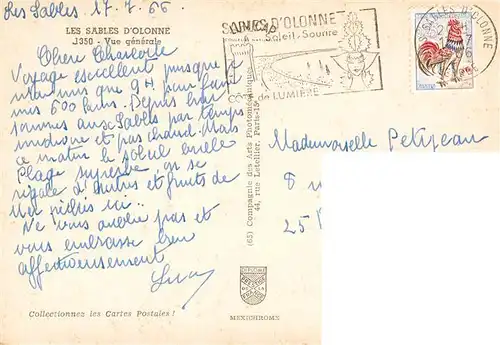 Les Sables 17.7.66
LES SABLES D'OLONNE
J350 - Vue générale
Chère Charlotte
Voyage excellent puisque n'
avons mis que 9 H pour faire
mes 600 Kms. Depuis hier
sommes aux Sables par temps
médiocre et pas chaud. Mais
ce matin le soleil brille
Plage superbe, on se
régale d'huitres et fruits de
Mer pêchés ici.
Ne vous oublie pas et
vous embrasse bien
affectueusement
Collectionnez les Cartes Postales !
(65) Compagnie des Arts Photomécaniques
44, rue Letellier, Paris-15e
MEXICHROME
SABLES D'OLONNE
Soleil - Sourire
CÔTE de LUMIÈRE
LES SABLES D'OLONNE
Mademoiselle Petijean
25